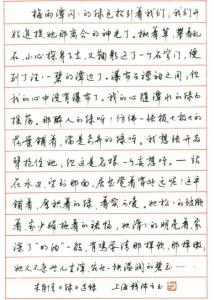 梅雨潭闪闪的绿色招引着我们，我们开
始追捉她那离合的神光了。揪着草，攀着乱
石，小心探身下去，又鞠躬过了一个石穹门，便
到了汪汪一碧的潭边了。瀑布在襟袖之间，但
我的心中已没有瀑布了。我的心随潭水的绿而
摇荡。那醉人的绿呀，仿佛一张极大极大的
荷叶铺着，满是奇异的绿呀。我想张开两
臂抱住她，但这是怎样一个妄想呀。——站
在水边，望到那面，居然觉着有些远呢！这平
铺着，厚积着的绿，着实可爱。她松松的皱缬
着，像少妇拖着的裙幅，她滑滑的明亮着，像
涂了“明油”一般，有鸡蛋清那样软，那样嫩，
她又不杂些儿尘滓，宛然一块温润的碧玉……
朱自清《绿》选录 上海